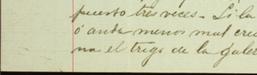 puesto tres veces. Si la
ó anda menos mal cree
na el trigo de la